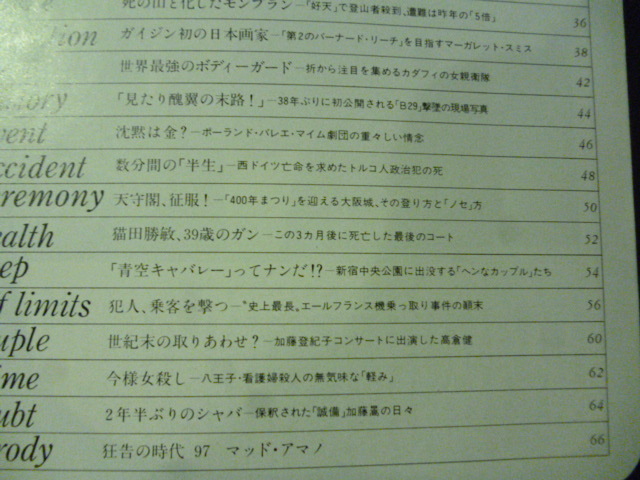 死の山と化したモンブラン―「好天」で登山者殺到、遭難は昨年の「5倍」 36
tion ガイジン初の日本画家―「第2のバーナード・リーチ」を目指すマーガレット・スミス 38
世界最強のボディーガード―折から注目を集めるカダフィの女親衛隊 42
story 「見たり醜翼の末路!」―38年ぶりに初公開される「B29」撃墜の現場写真 44
vent 沈黙は金?―ポーランド・バレエ・マイム劇団の重々しい情念 46
ccident 数分間の「半生」―西ドイツ亡命を求めたトルコ人政治犯の死 48
eremony 天守閣、征服!―「400年まつり」を迎える大阪城、その登り方と「ノセ」方 50
ealth 猫田勝敏、39歳のガン―この3カ月後に死亡した最後のコート 52
eep 「青空キャバレー」ってナンだ!?―新宿中央公園に出没する「ヘンなカップル」たち 54
f limits 犯人、乗客を撃つ―“史上最長„エールフランス機乗っ取り事件の顛末 56
uple 世紀末の取りあわせ?―加藤登紀子コンサートに出演した高倉健 60
ime 今様女殺し―八王子・看護婦殺人の無気味な「軽み」 62
ubt 2年半ぶりのシャバ―保釈された「誠備」加藤暠の日々 64
rody 狂告の時代 97 マッド・アマノ 66